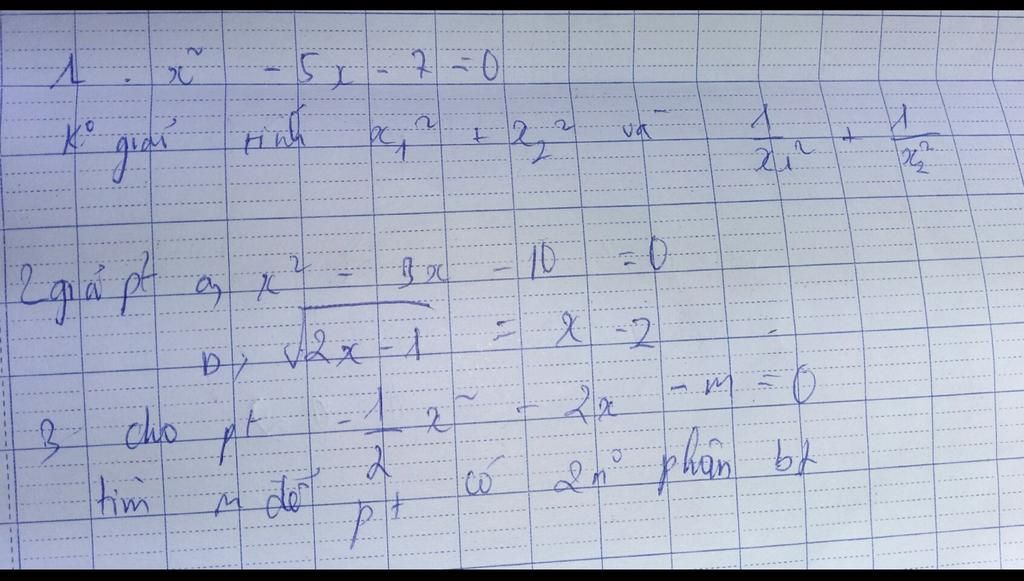 1. x² - 5x - 7 = 0
K° giải tính x₁² + x₂² và 1/x₁² + 1/x₂²
2 giải pt a, x² - 3x - 10 = 0
b, √(2x - 1) = x - 2
3 cho pt -1/2 x² - 2x - m = 0
tìm m để pt có 2n° phân bt